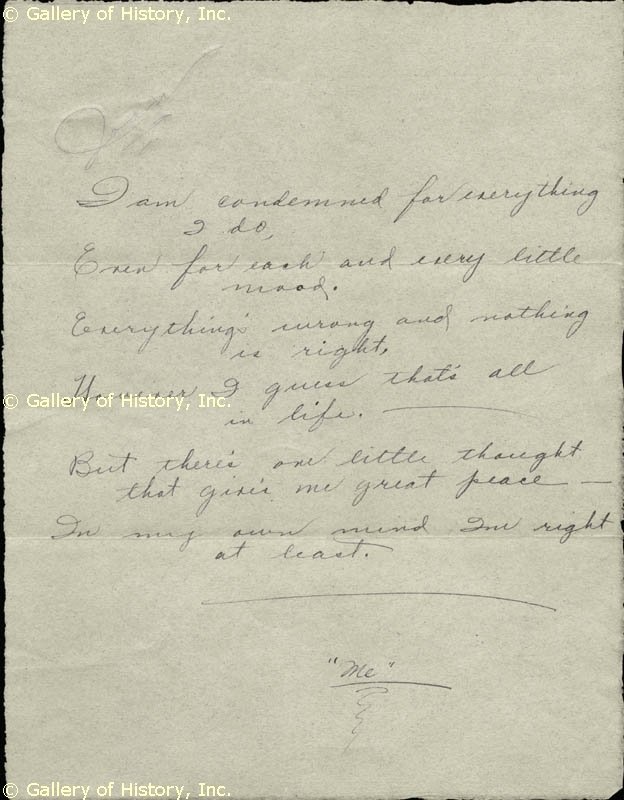 © Gallery of History, Inc.
I am condemned for everything
I do,
Even for each and every little
mood.
Everything's wrong and nothing
is right,
However I guess that's all
© Gallery of History, Inc.
in life. —
But there's one little thought
that give's me great peace —
In my own mind I'm right
at least.
"Me"
© Gallery of History, Inc.